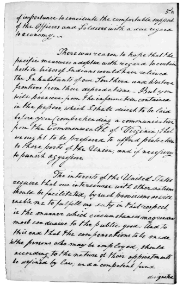 of importance to conciliate the comfortable support
of the Officers and Soldiers with a due regard
to economy.
There was reason to hope that the
pacific measures adopted with regard to certain
hostile tribes of Indians would have relieved
the Inhabitants of our Southern and Western
frontiers from their depredations. But you
will perceive, from the information contained
in the papers, which I shall direct to be laid
before you (comprehending a communication
from the Commonwealth of Virginia) that
we ought to be prepared to afford protection
to those parts of the Union; and if necessary
to punish aggressors.
The interests of the United States
require that our intercourse with other nations
should be facilitated by such provisions as will
enable me to fulfil my duty in that respect
in the manner which circumstances may render
most conducive to the public good: And to
this end that the compensations to be made
to the persons who may be employed, should
according to the nature of their appointments
be defined by law; and a competent fund